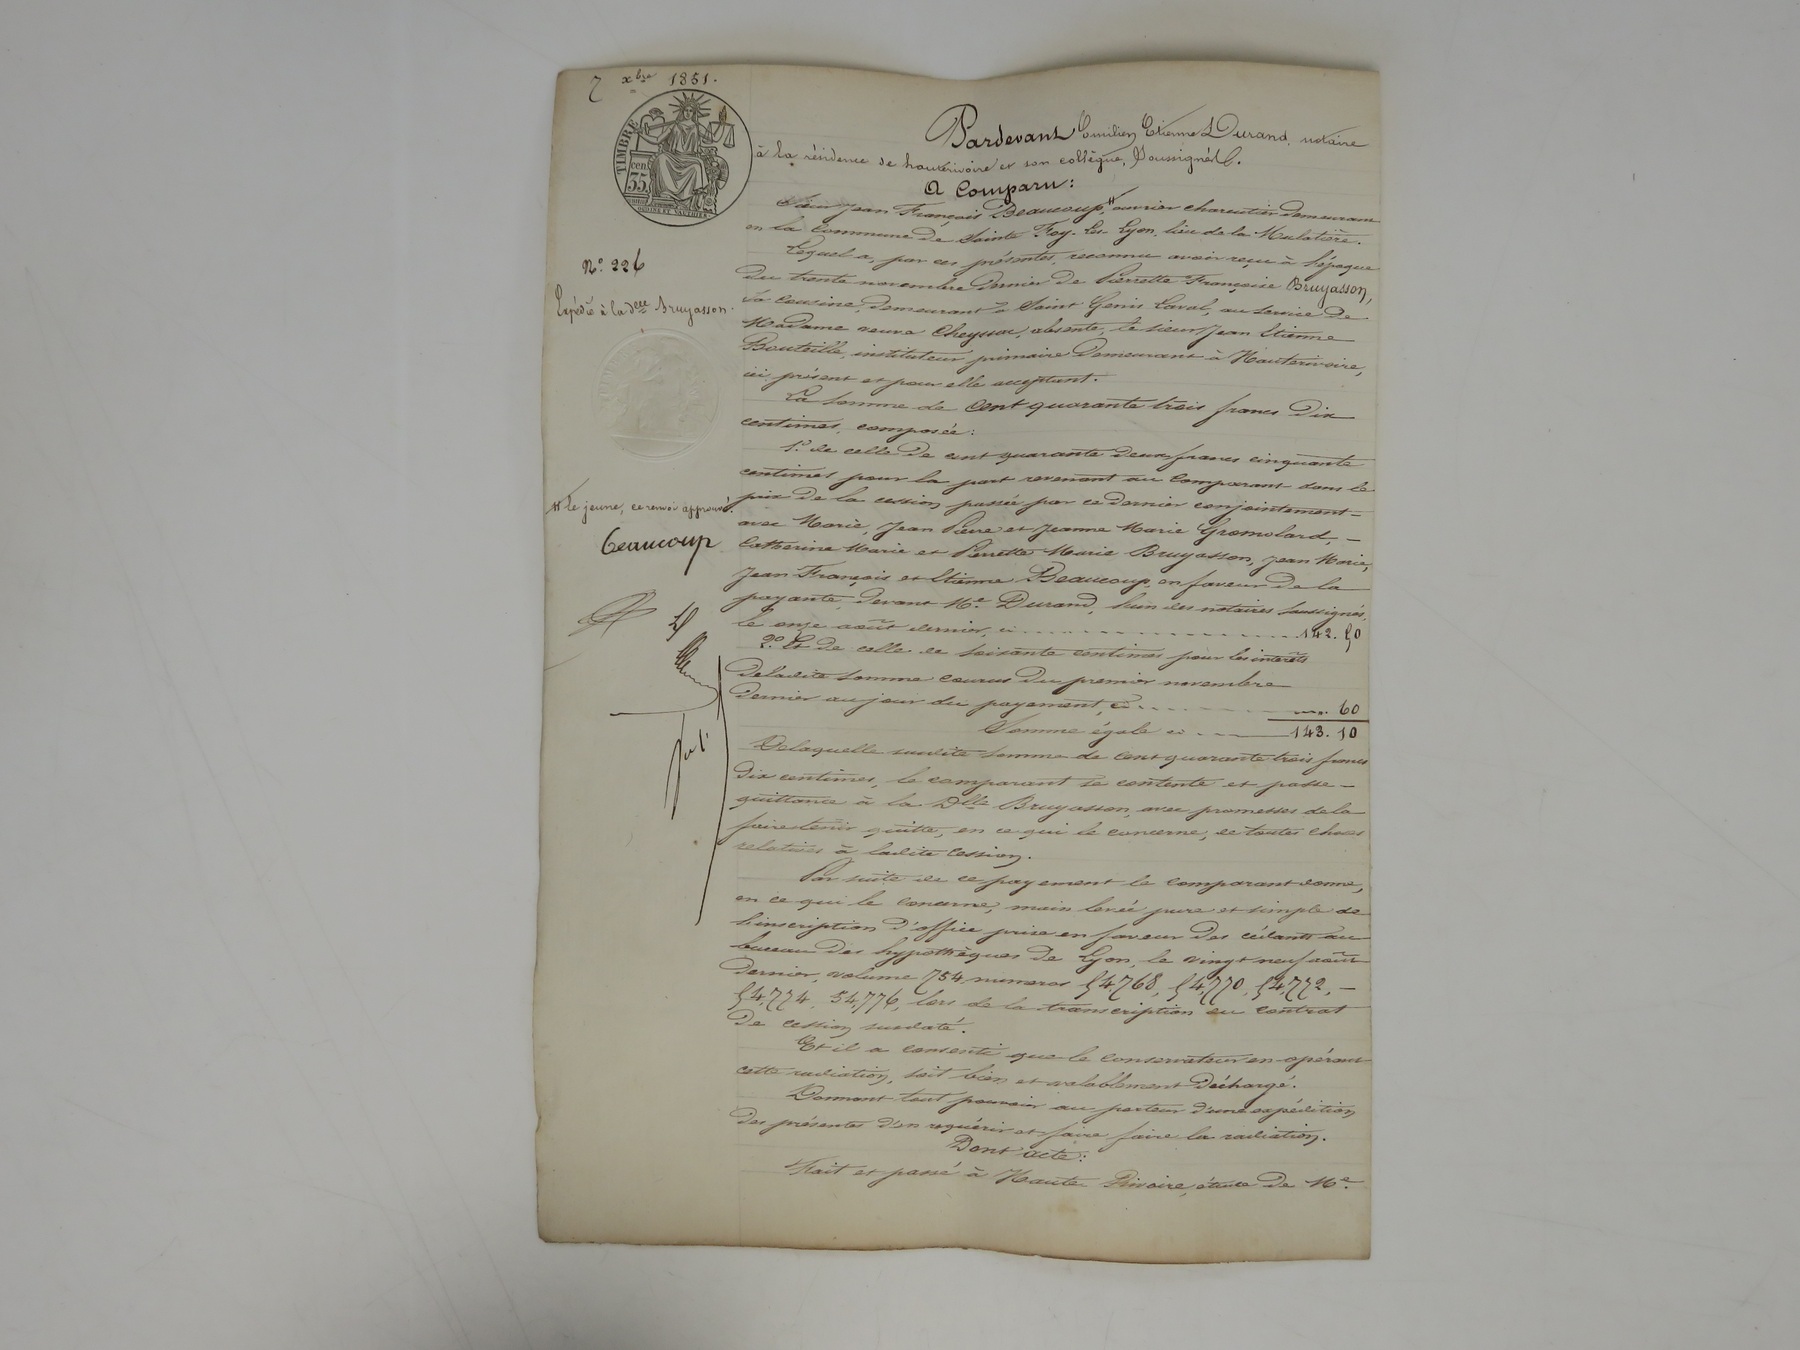 7 xbre 1851.
TIMBRE
cen
35
Pardevant Emilien Etienne Durand, notaire
à la résidence de hauterivoire et son collègue, soussignés.
A Comparu:
Sieur Jean François Beaucoup,# ouvrier charcutier demeurant
en la Commune de Sainte Foy-Les-Lyon, lieu de la Mulatière.
N° 226
Lequel a, par ces présentes, reconnu avoir reçu à l'époque
du trente novembre dernier de Pierrette Françoise Bruyasson,
Expédié à la delle Bruyasson.
sa cousine, demeurant à Saint Genis Laval, au service de
Madame veuve Cheyssac, absente, le sieur Jean Etienne
Bouteille, instituteur primaire demeurant à Hauterivoire,
ici présent et pour elle acceptant.
La somme de cent quarante trois francs dix
centimes, composée:
1° de celle de cent quarante deux francs cinquante
centimes pour la part revenant au Comparant dans le
prix de la cession passée par ce dernier conjointement
# le jeune, ce renvoi approuvé.
avec Marie, Jean Pierre et Jeanne Marie Gromolard, —
Beaucoup
Catherine Marie et Pierrette Marie Bruyasson, Jean Marie,
Jean François et Etienne Beaucoup, en faveur de la
payante, devant Me Durand, l'un des notaires soussignés,
D
le onze août dernier, ci 142. 50
2° Et de celle de soixante centimes pour les intérêts
de ladite somme courus du premier novembre
dernier au jour du payement, ci 60
Somme égale ci 143. 10
De laquelle susdite somme de cent quarante trois francs
dix centimes, le comparant se contente et passe —
quittance à la Dlle Bruyasson, avec promesses de la
faire tenir quitte, en ce qui le concerne, de toutes choses
relatives à ladite Cession.
Par suite de ce payement le comparant donne,
en ce qui le concerne, main levée pure et simple de
l'inscription d'office prise en faveur des cédants au
bureau des hypothèques de Lyon, le vingt neuf août
dernier, volume 754, numeros 54,768, 54,770, 54,772, —
54,774, 54,776, lors de la transcription du contrat
de cession susdaté.
Et il a consenti que le conservateur en opérant
cette radiation, soit bien et valablement déchargé.
Donnant tout pouvoir au porteur d'une expédition
des présentes d'en requérir et faire faire la radiation.
Dont acte:
Fait et passé à Haute Rivoire, étude de Me